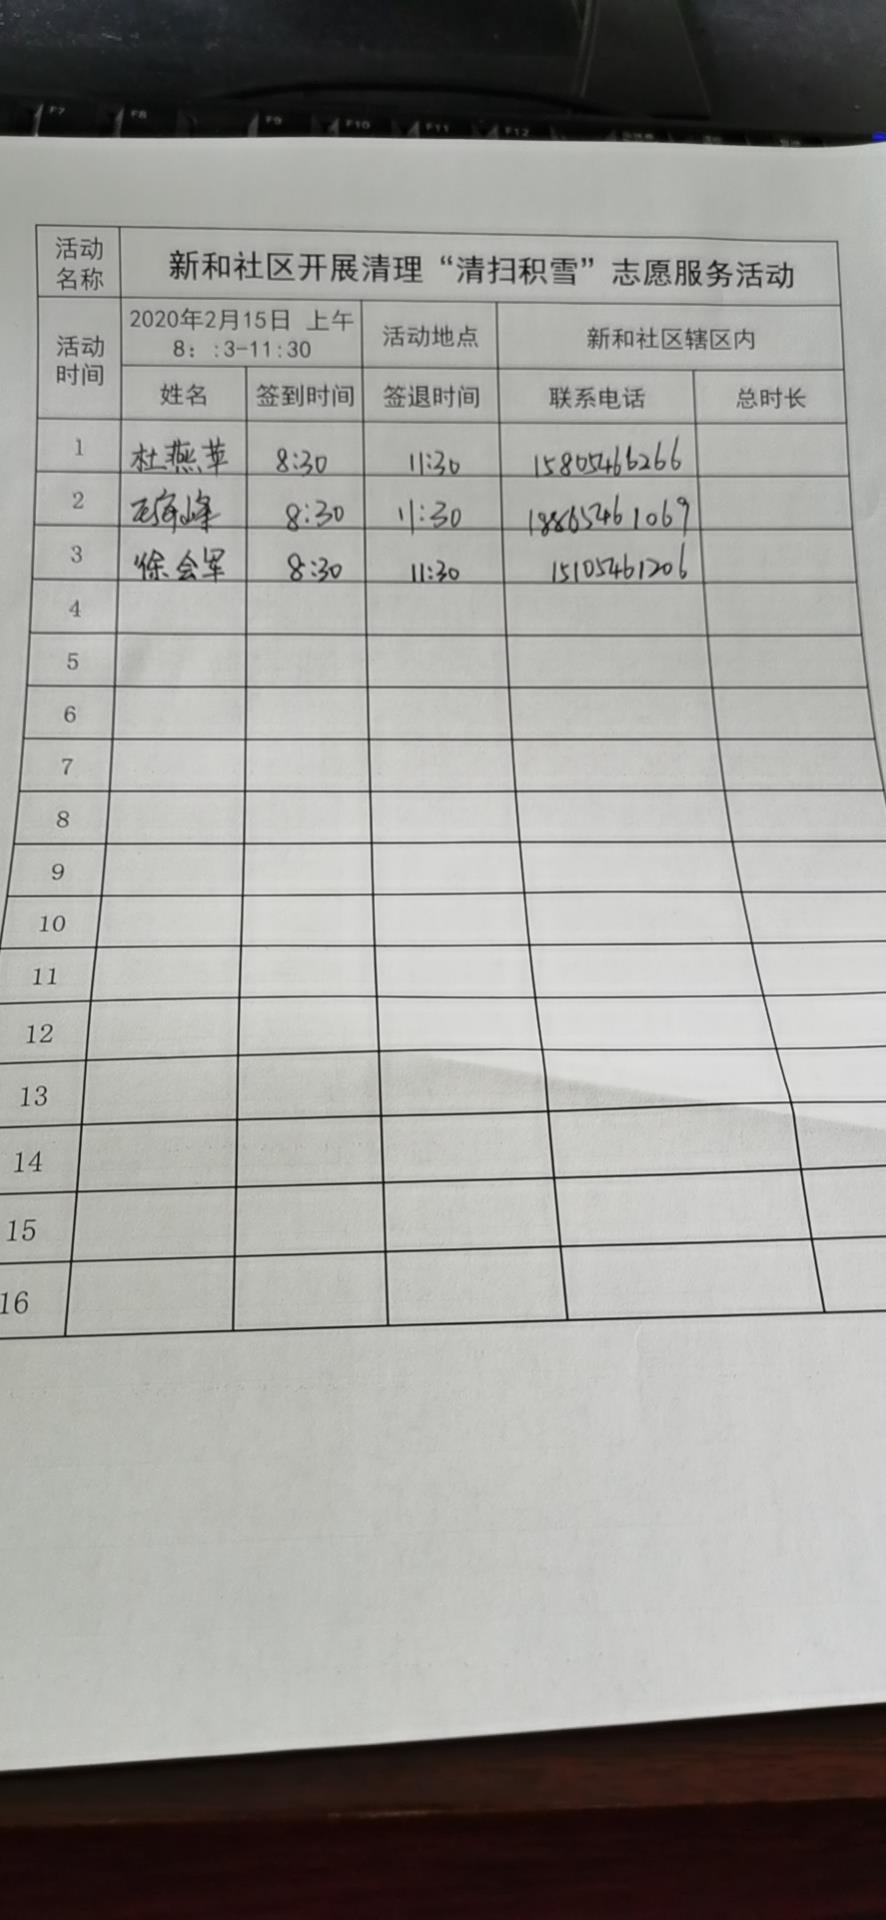 F7 F8 F9 F10 F11 F12
活动名称 新和社区开展清理“清扫积雪”志愿服务活动
活动时间 2020年2月15日 上午 8：:3-11:30 活动地点 新和社区辖区内
姓名 签到时间 签退时间 联系电话 总时长
1 杜燕苹 8:30 11:30 15805466266
2 8:30 11:30 18865461069
3 徐会军 8:30 11:30 15105461206
4
5
6
7
8
9
10
11
12
13
14
15
16